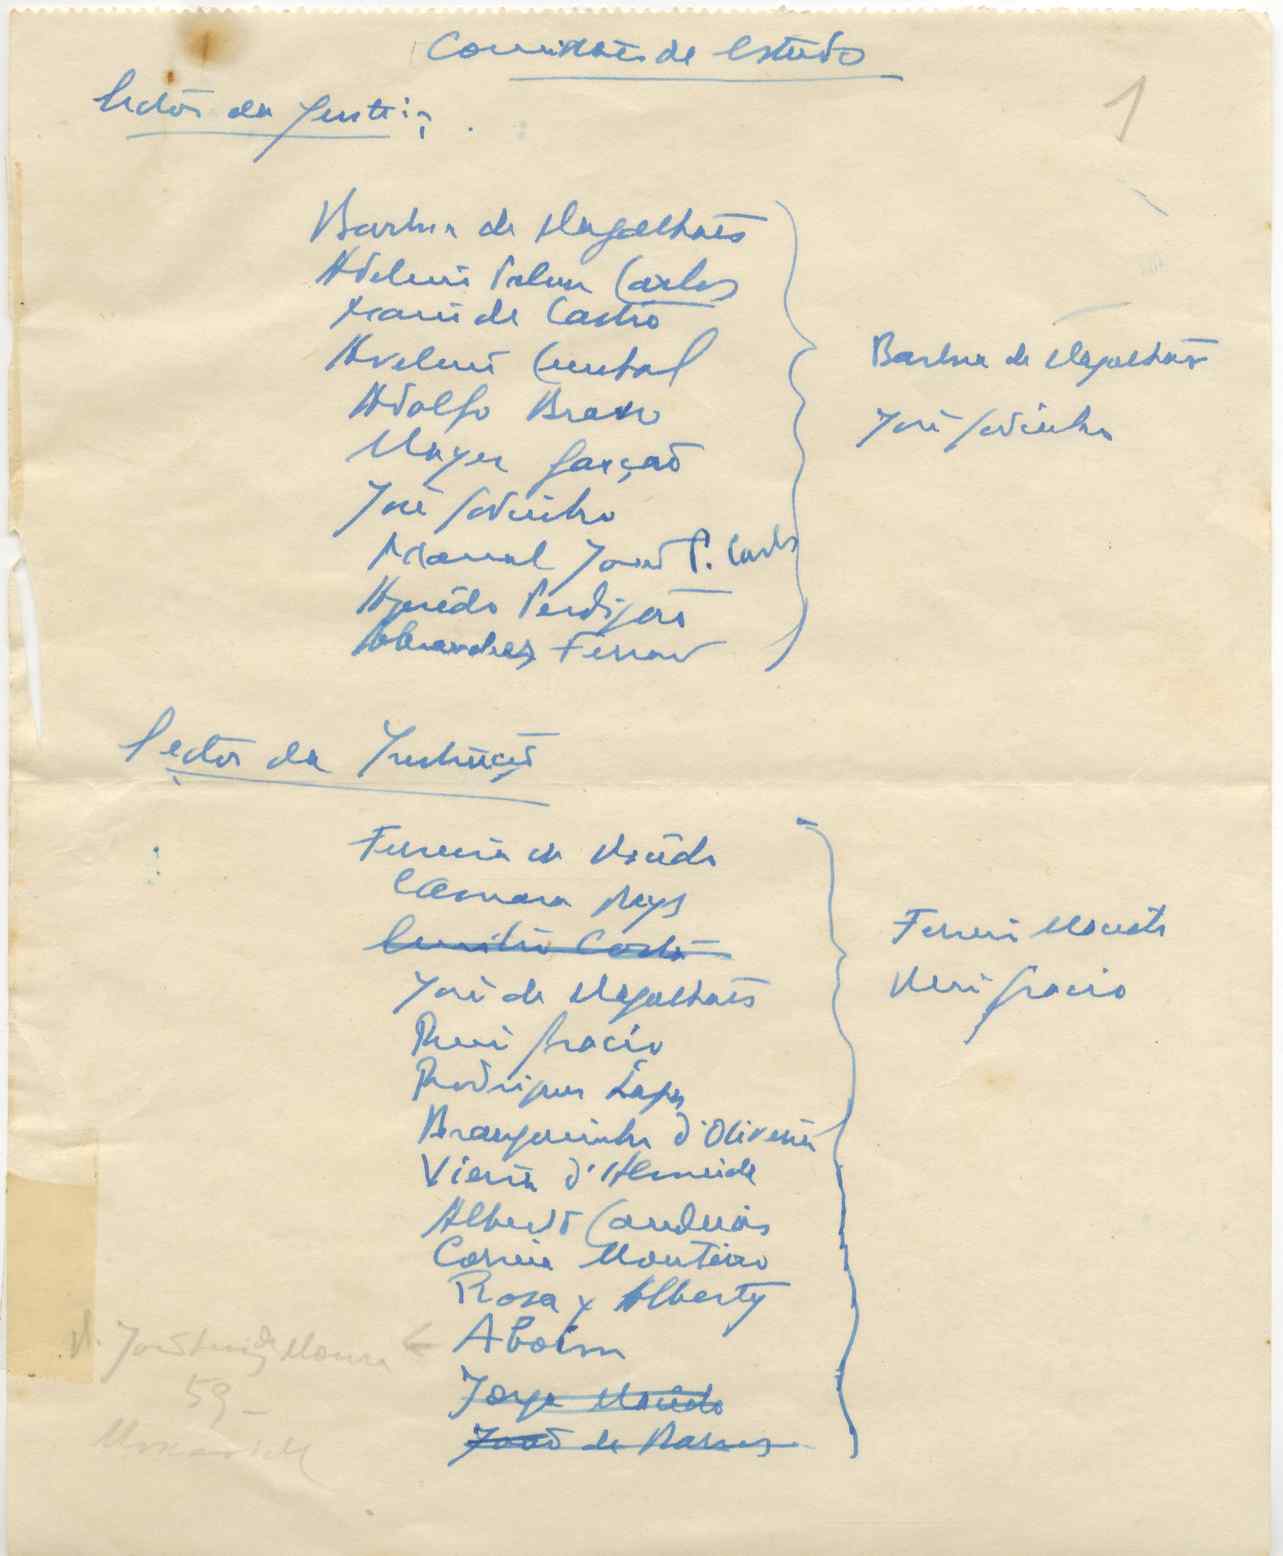 Comissões de estudo
1
Sector da Justiça
Barbosa de Magalhães
Adelino Palma Carlos
Mario de Castro
Avelino Cunhal
Adolfo Bravo
Mayer Garção
José Godinho
Manuel João P. Carlos
Azeredo Perdigão
Abranches Ferrão
Barbosa de Magalhães
José Godinho
Sector da Instrução
Ferreira de Macedo
Câmara Reys
Emilio Costa
José de Magalhães
Rui Grácio
Rodrigues Lapa
Branquinho d'Oliveira
Vieira d'Almeida
Alberto Candeias
Correia Monteiro
Rosa y Alberty
Aboim
Jorge Macedo
João de Barros
Ferreira Macedo
Rui Grácio
59